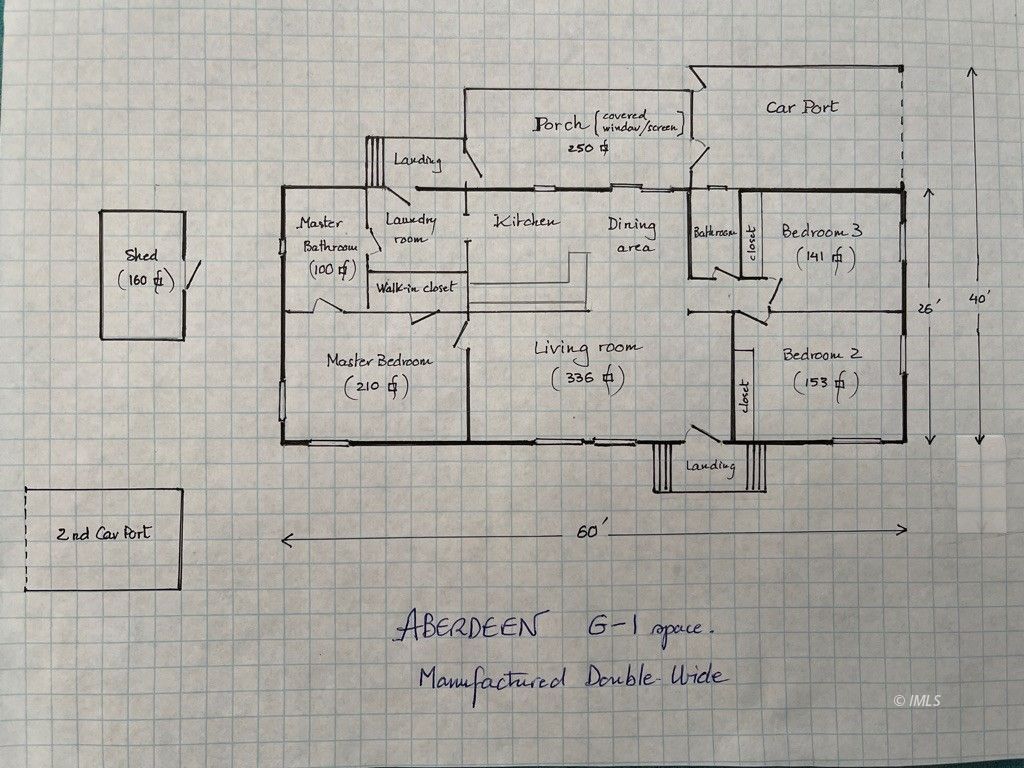 Car Port
Porch [covered
window/screen]
250 ⏍
Landing
Master
Bathroom
(100 ⏍)
Laundry
room
Kitchen
Dining
area
Bathroom
closet
Bedroom 3
(141 ⏍)
Shed
(160 ⏍)
Walk-in closet
26'
40'
Master Bedroom
(210 ⏍)
Living room
(336 ⏍)
Bedroom 2
(153 ⏍)
closet
Landing
2nd Car Port
60'
ABERDEEN G-1 space.
Manufactured Double-Wide
© IMLS